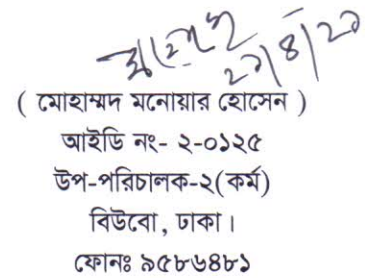 ২৯/৪/২১
( মোহাম্মদ মনোয়ার হোসেন )
আইডি নং- ২-০১২৫
উপ-পরিচালক-২(কর্ম)
বিউবো, ঢাকা।
ফোনঃ ৯৫৮৬৪৮১